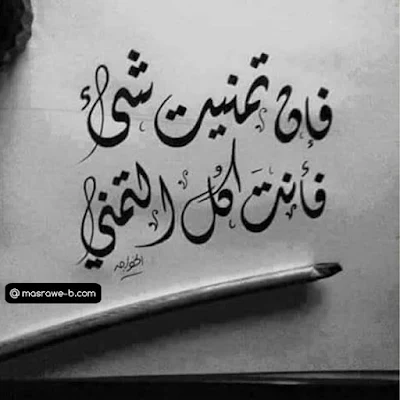 فإن تمنيت شئ
فأنتَ كُل التمني
@masrawe-b.com